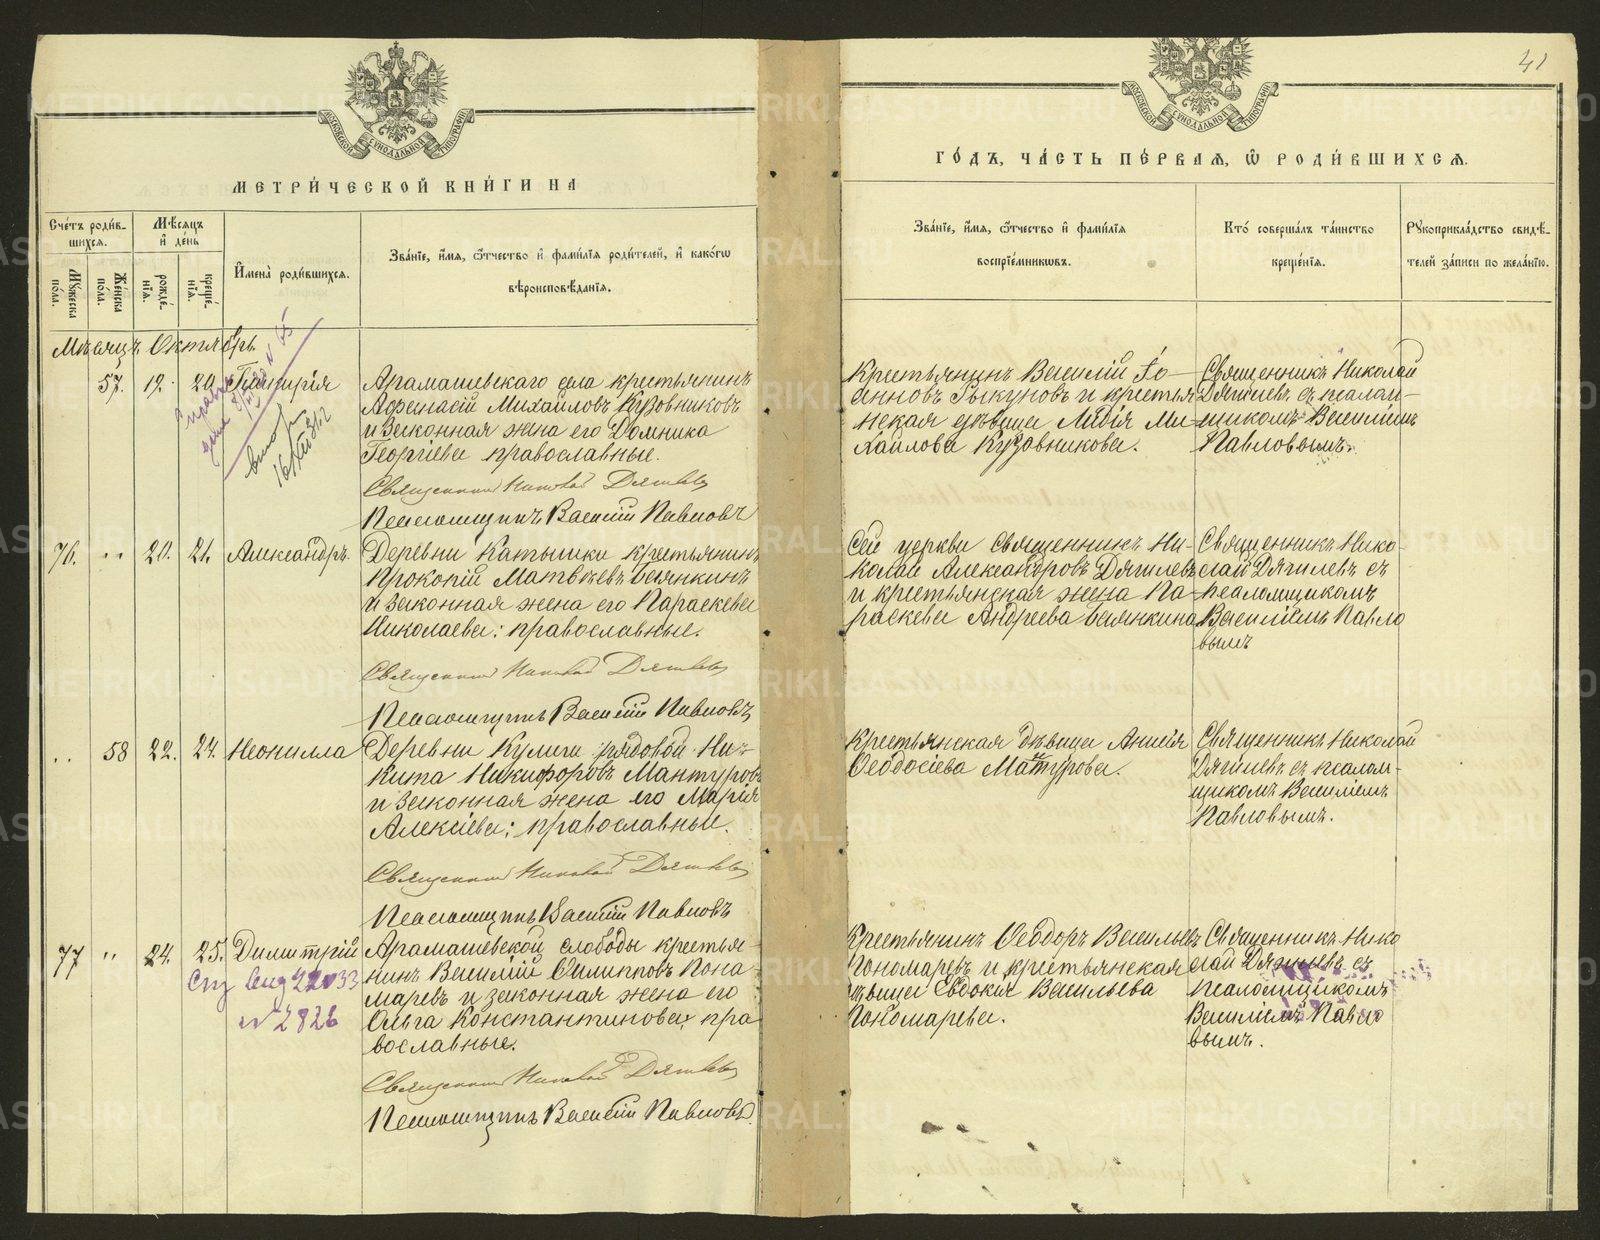 41
МЕТРИ́ЧЕСКОЙ КНИ́ГИ НА
ГО́ДЪ, ЧА́СТЬ ПЕ́РВАЯ, Ѽ РОДИ́ВШИХСЯ.
Сче́тъ роди́в-
шихся.
Мѣ́сяцъ
и҆ де́нь
Мꙋ́жеска по́ла.
Же́нска по́ла.
рожде́-
нїя.
креще́-
нїя.
И҆мена̀ роди́вшихся.
Зва́нїе, и҆́мя, ѻ҆́тчество и҆ фами́лїя роди́телей, и҆ како́гѡ
вѣроисповѣ́данїя.
Зва́нїе, и҆́мя, ѻ҆́тчество и҆ фами́лїя
воспрїе́мникѡвъ.
Кто̀ соверша́лъ та́инство
креще́нїя.
Рꙋкоприкла́дство свидѣ́-
телей за́писи по жела́нїю.
Мѣсяцъ Октябрь.
57. 19. 20.
Арамашевскаго села крестьянинъ
Аѳанасій Михайловъ Кузовниковъ
и законная жена его Домника
Георгіева православные.
Священникъ Николай Дягилевъ
Псаломщикъ Василій Павловъ
Крестьянинъ Василій Іо-
анновъ Рыкуновъ и крестья
нская дѣвица Лидія Ми-
хайлова Кузовникова.
Священникъ Николай
Дягилевъ съ псалом-
щикомъ Василіемъ
Павловымъ.
76. " 20. 21. Александръ
Деревни Катышки крестьянинъ
Прокопій Матвѣевъ Бѣлянкинъ
и законная жена его Параскева
Николаева; православные.
Священникъ Николай Дягилевъ
Псаломщикъ Василій Павловъ
Сей церкви священникъ Ни-
колай Александровъ Дягилевъ
и крестьянская жена Па-
раскева Андреева Бѣлянкина
Священникъ Нико-
лай Дягилевъ съ
псаломщикомъ
Василіемъ Павло
вымъ
" 58 22. 24. Неонилла
Деревни Кулиги рядовой Ни-
кита Никифоровъ Мантуровъ
и законная жена его Марія
Алексіева; православные.
Священникъ Николай Дягилевъ
Псаломщикъ Василій Павловъ
Крестьянская дѣвица Анисія
Ѳеодосіева Мантурова.
Священникъ Николай
Дягилевъ съ псалом-
щикомъ Василіемъ
Павловымъ.
77 " 24. 25. Димитрій
№ 2826
Арамашевской слободы крестья-
нинъ Василій Филипповъ Поно-
маревъ и законная жена его
Ольга Константинова; пра
вославные.
Священникъ Николай Дягилевъ
Псаломщикъ Василій Павловъ
Крестьянинъ Ѳеодоръ Васильевъ
Пономаревъ и крестьянская
дѣвица Евдокія Васильева
Пономарева.
Священникъ Нико
лай Дягилевъ съ
псаломщикомъ
Василіемъ Павло
вымъ.